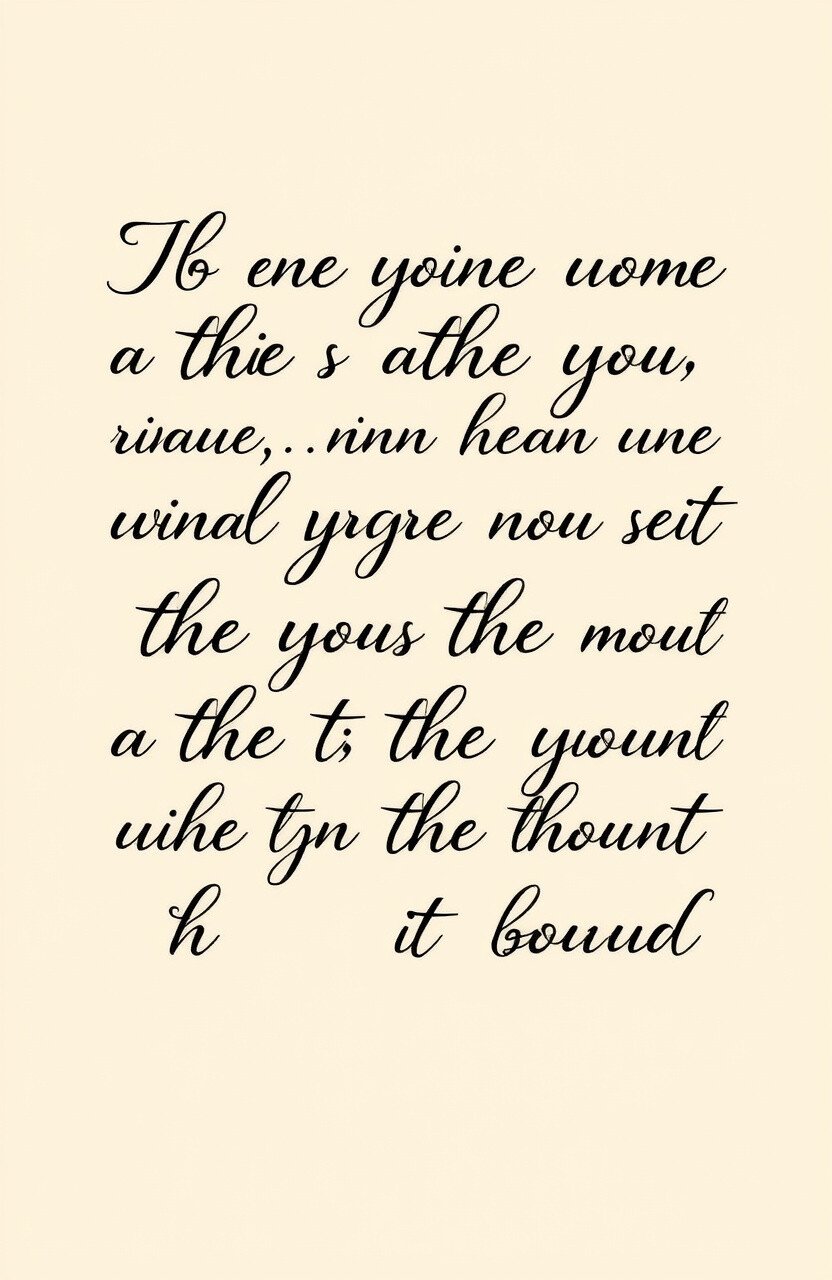 Ib ene yoine uome
a thie s athe you,
rivaue,..ninn hean une
winal yrgre nou seit
the yous the mout
a the t; the ywount
uihe tjn the thount
h it bouud